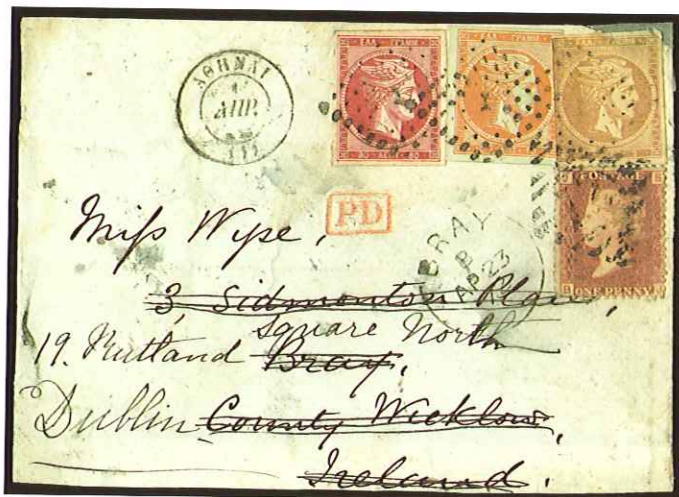 ΑΘΗΝΑΙ
ΑΠΡ.
(11)
ΕΛΛ. ΓΡΑΜΜ.
80 ΛΕΠ. 80
ΕΛΛ. ΓΡΑΜΜ.
ΕΛΛ. ΓΡΑΜΜ.
POSTAGE
ONE PENNY
PD
BRAY
B
AP 23
Miss Wyse,
3, Sidmonton Place,
square North
19. Rutland Bray,
Dublin County Wicklow,
Ireland.